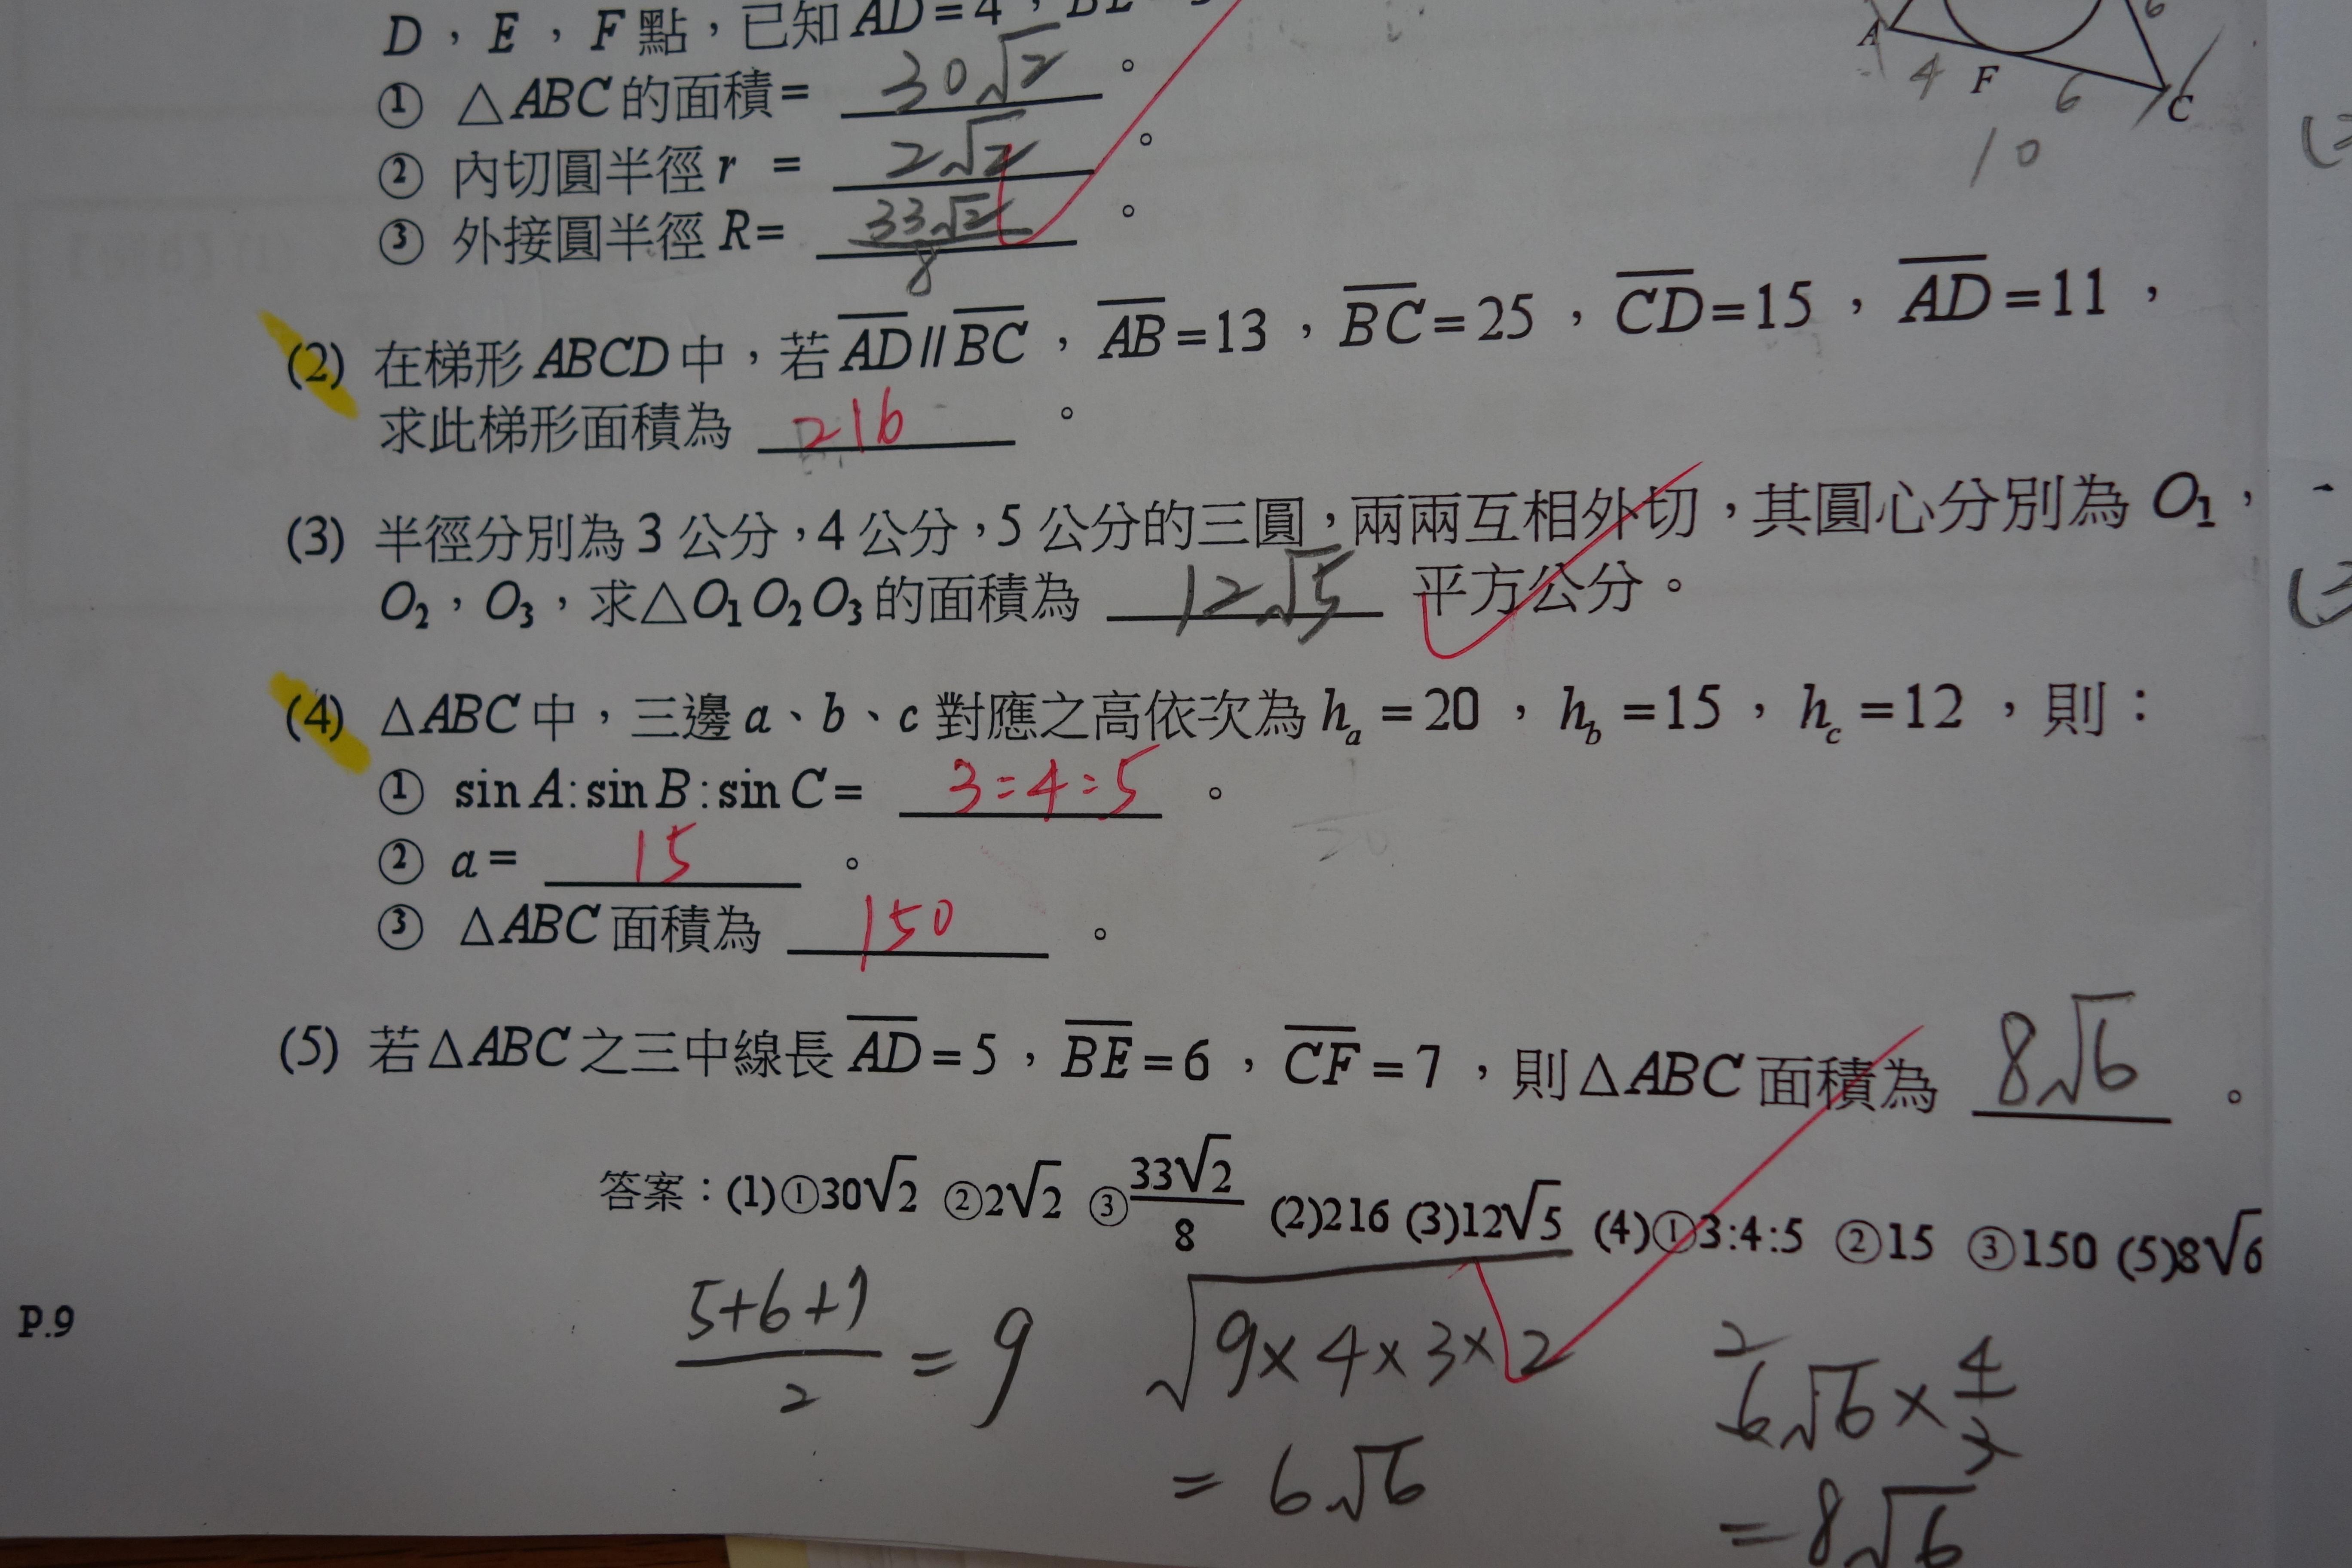 D，E，F點，已知 AD=4，
A
4
F
6
C
10
① △ABC的面積= 30√2 。
② 內切圓半徑 r = 2√2 。
③ 外接圓半徑 R= 33√2/8 。
(2) 在梯形ABCD中，若 AD//BC，AB=13，BC=25，CD=15，AD=11，
求此梯形面積為 216 。
(3) 半徑分別為3公分，4公分，5公分的三圓，兩兩互相外切，其圓心分別為 O₁，
O₂，O₃，求△O₁O₂O₃的面積為 12√5 平方公分。
(4) △ABC中，三邊a、b、c對應之高依次為 hₐ=20，h_b=15，h_c=12，則：
① sin A:sin B:sin C= 3:4:5 。
② a= 15 。
③ △ABC面積為 150 。
(5) 若△ABC之三中線長 AD=5，BE=6，CF=7，則△ABC面積為 8√6 。
答案：(1)①30√2 ②2√2 ③33√2/8 (2)216 (3)12√5 (4)①3:4:5 ②15 ③150 (5)8√6
P.9
(5+6+7)/2 = 9
√9×4×3×2
= 6√6
2
6√6×4/3
=8√6